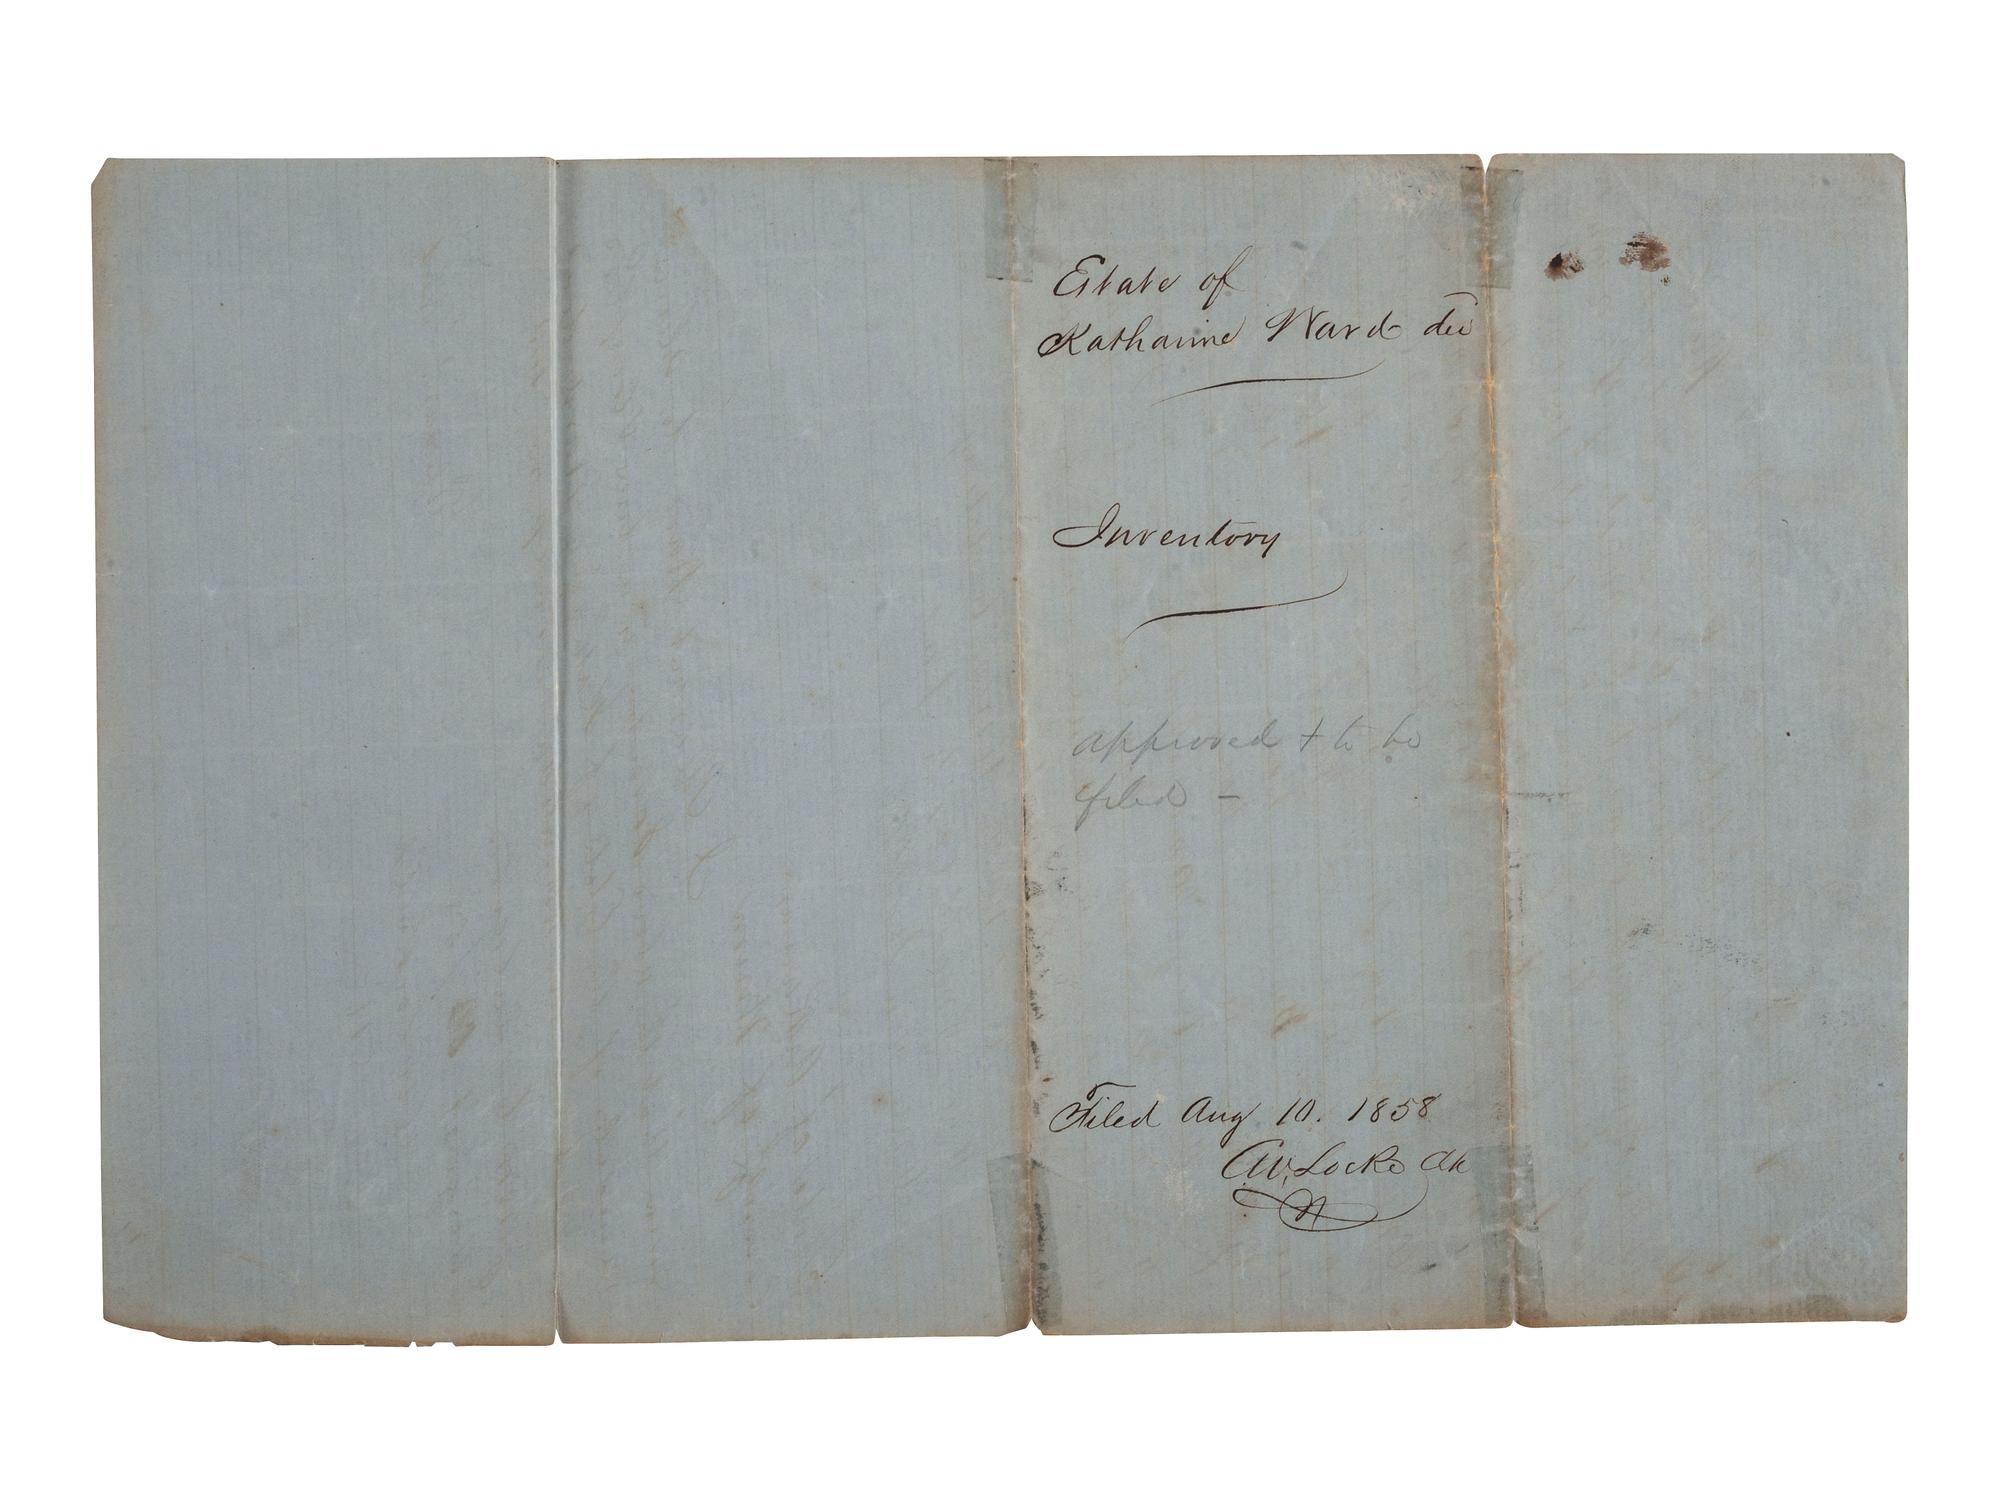 Estate of
Katharine Ward dec
Inventory
approved + to be
filed –
Filed Aug 10. 1858
A.V. Locke Clk